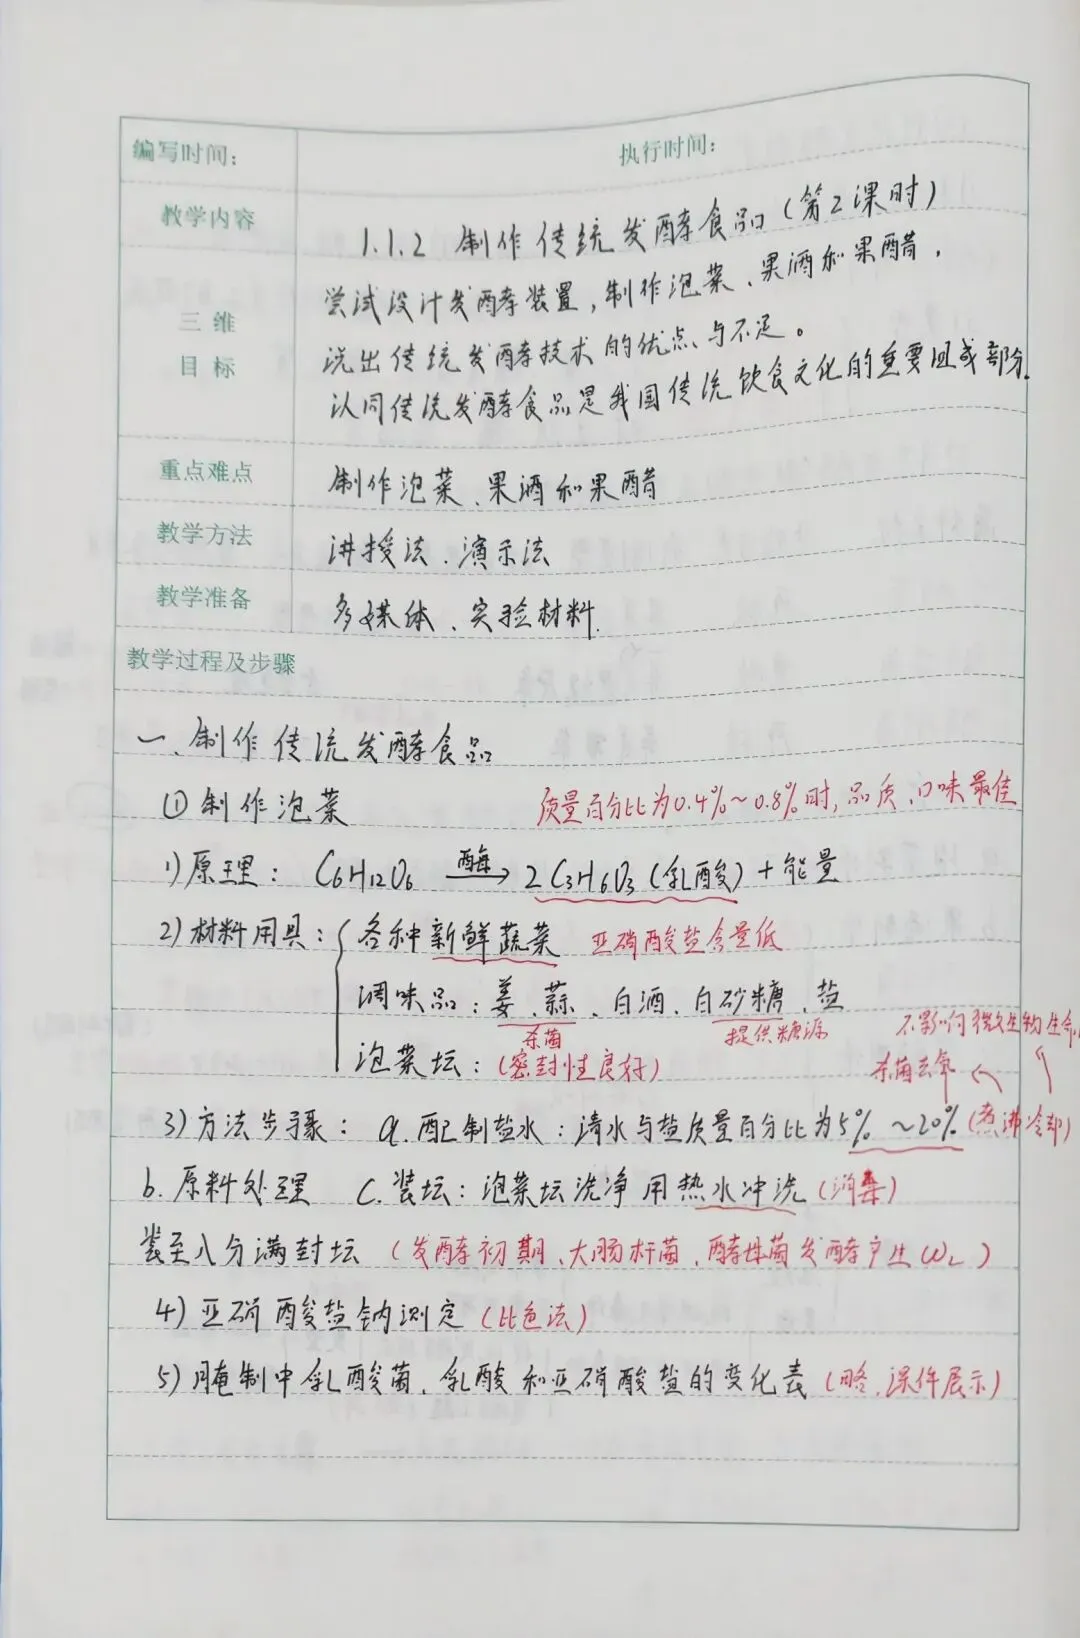 编写时间： 执行时间：
教学内容 1.1.2 制作传统发酵食品（第2课时）
三维目标 尝试设计发酵装置，制作泡菜、果酒和果醋，
说出传统发酵技术的优点与不足。
认同传统发酵食品是我国传统饮食文化的重要组成部分.
重点难点 制作泡菜、果酒和果醋
教学方法 讲授法、演示法
教学准备 多媒体、实验材料.
教学过程及步骤
一、制作传统发酵食品
①制作泡菜 质量百分比为0.4%～0.8%时，品质、口味最佳
1)原理： C6H12O6 酶→ 2C3H6O3（乳酸）+能量
2)材料用具：{各种新鲜蔬菜 亚硝酸盐含量低
调味品：姜、蒜、白酒、白砂糖、盐
杀菌 提供糖源 不影响微生物生命
泡菜坛：（密封性良好） 杀菌去氧
3)方法步骤： a.配制盐水：清水与盐质量百分比为5%～20%（煮沸冷却）
b.原料处理 C.装坛：泡菜坛洗净用热水冲洗（消毒）
装至八分满封坛（发酵初期、大肠杆菌、酵母菌发酵产生CO2）
4)亚硝酸盐钠测定（比色法）
5)腌制中乳酸菌、乳酸和亚硝酸盐的变化表（略，课件展示）